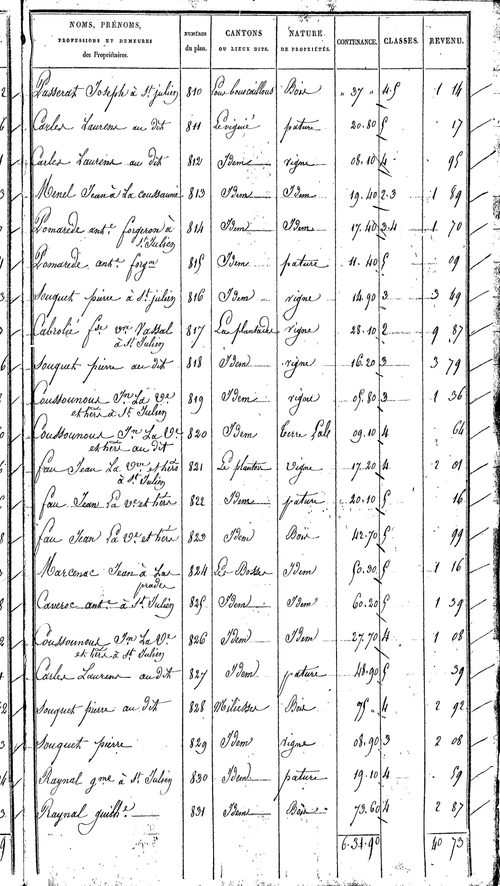 NOMS, PRÉNOMS, PROFESSIONS ET DEMEURES des Propriétaires. NUMÉROS du plan. CANTONS OU LIEUX DITS. NATURE DE PROPRIÉTÉS. CONTENANCE. CLASSES. REVENU.
Passerat Joseph à St julien 810 Bois " 37 " 4.5 1 14
Carles Laurens au dit 811 Le viguié pature 20.80 5 17
Carles Laurens au dit 812 Idem vigne 08.10 4 95
Menel Jean à La coussaune 813 Idem Idem 19.40 2.3 1 89
Pomarède ant.e forgeron à St Julien 814 Idem Idem 17.40 3.4 1 70
Pomarède ant.e forg.n 815 Idem pature 11.40 5 09
Souquet pierre à St julien 816 Idem vigne 14.90 3 3 49
Cabrolié f.se v.ve Vassal à St Julien 817 Las plantades vigne 28.10 2 9 87
Souquet pierre au dit 818 Idem vigne 16.20 3 3 79
Coussounous J.n La V.e et hérs à St Julien 819 Idem vigne 05.80 3 1 36
Coussounous J.n La V.e et hérs au dit 820 Idem terre Lab.e 09.10 4 64
fau Jean La v.ve et hérs à St Julien 821 Le plantou vigne 17.20 4 2 01
fau Jean La v.e et hérs 822 Idem pature 20.10 5 16
fau Jean La V.e et hérs 823 Idem Bois 42.70 5 99
Marcenac Jean à Las prades 824 Les Bosses Idem 50.30 5 1 16
Caveroc ant.e à St Julien 825 Idem Idem 60.20 5 1 39
Coussounous J.n La V.e et hérs à St Julien 826 Idem Idem 27.70 4 1 08
Carles Laurens au dit 827 Idem pature 48.90 5 39
Souquet pierre au dit 828 Bois 75 " 4 2 92
Souquet pierre 829 Idem vigne 08.90 3 2 08
Raynal g.me à St Julien 830 Idem pature 19.10 4 59
Raynal guilh.e 831 Idem Bois 73.60 4 2 87
6.31.90 40 73